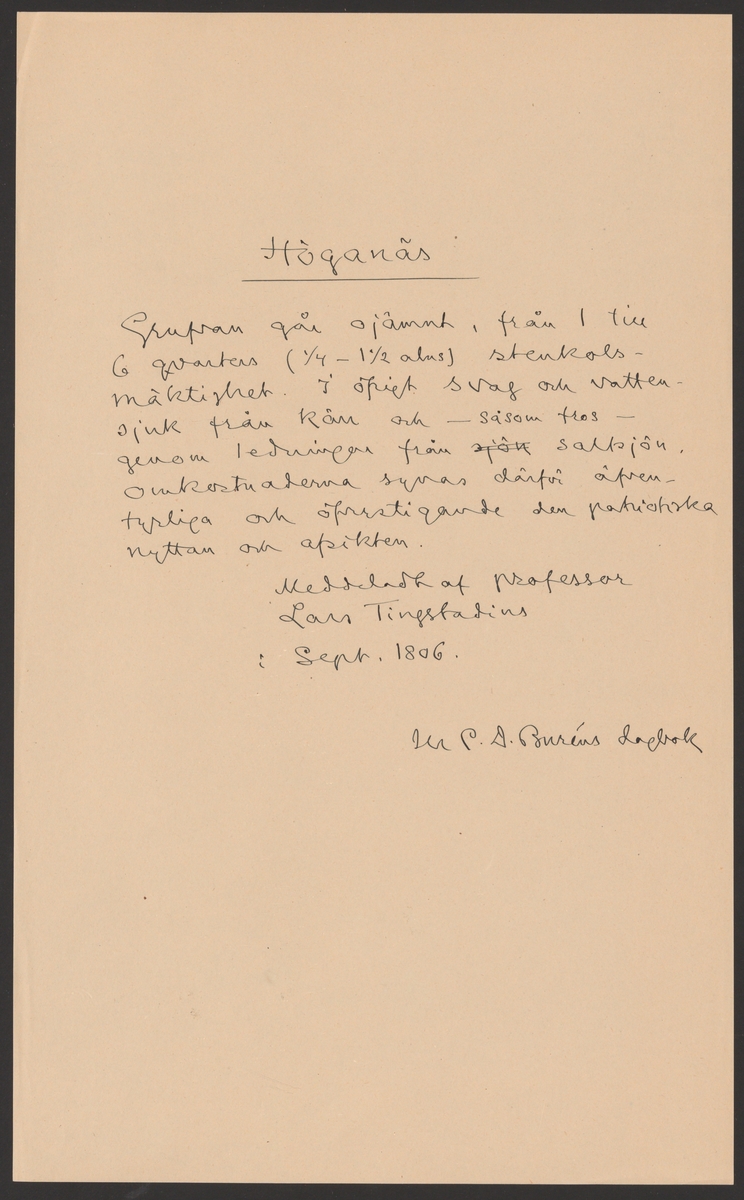 Höganäs
Grufvan går ojämnt, från 1 till
6 qvarters (1/4 – 1 1/2 alns) stenkols-
mäktighet. I öfrigt svag och vatten-
sjuk från kärr och – såsom tros –
genom ledningar från sjön saltsjön.
Omkostnaderna synas därför äfven-
tyrliga och öfverstigande den patriotiska
nyttan och afsikten.
Meddeladt af professor
Lars Tingstadius
i Sept. 1806.
Ur P. D. Buréns dagbok